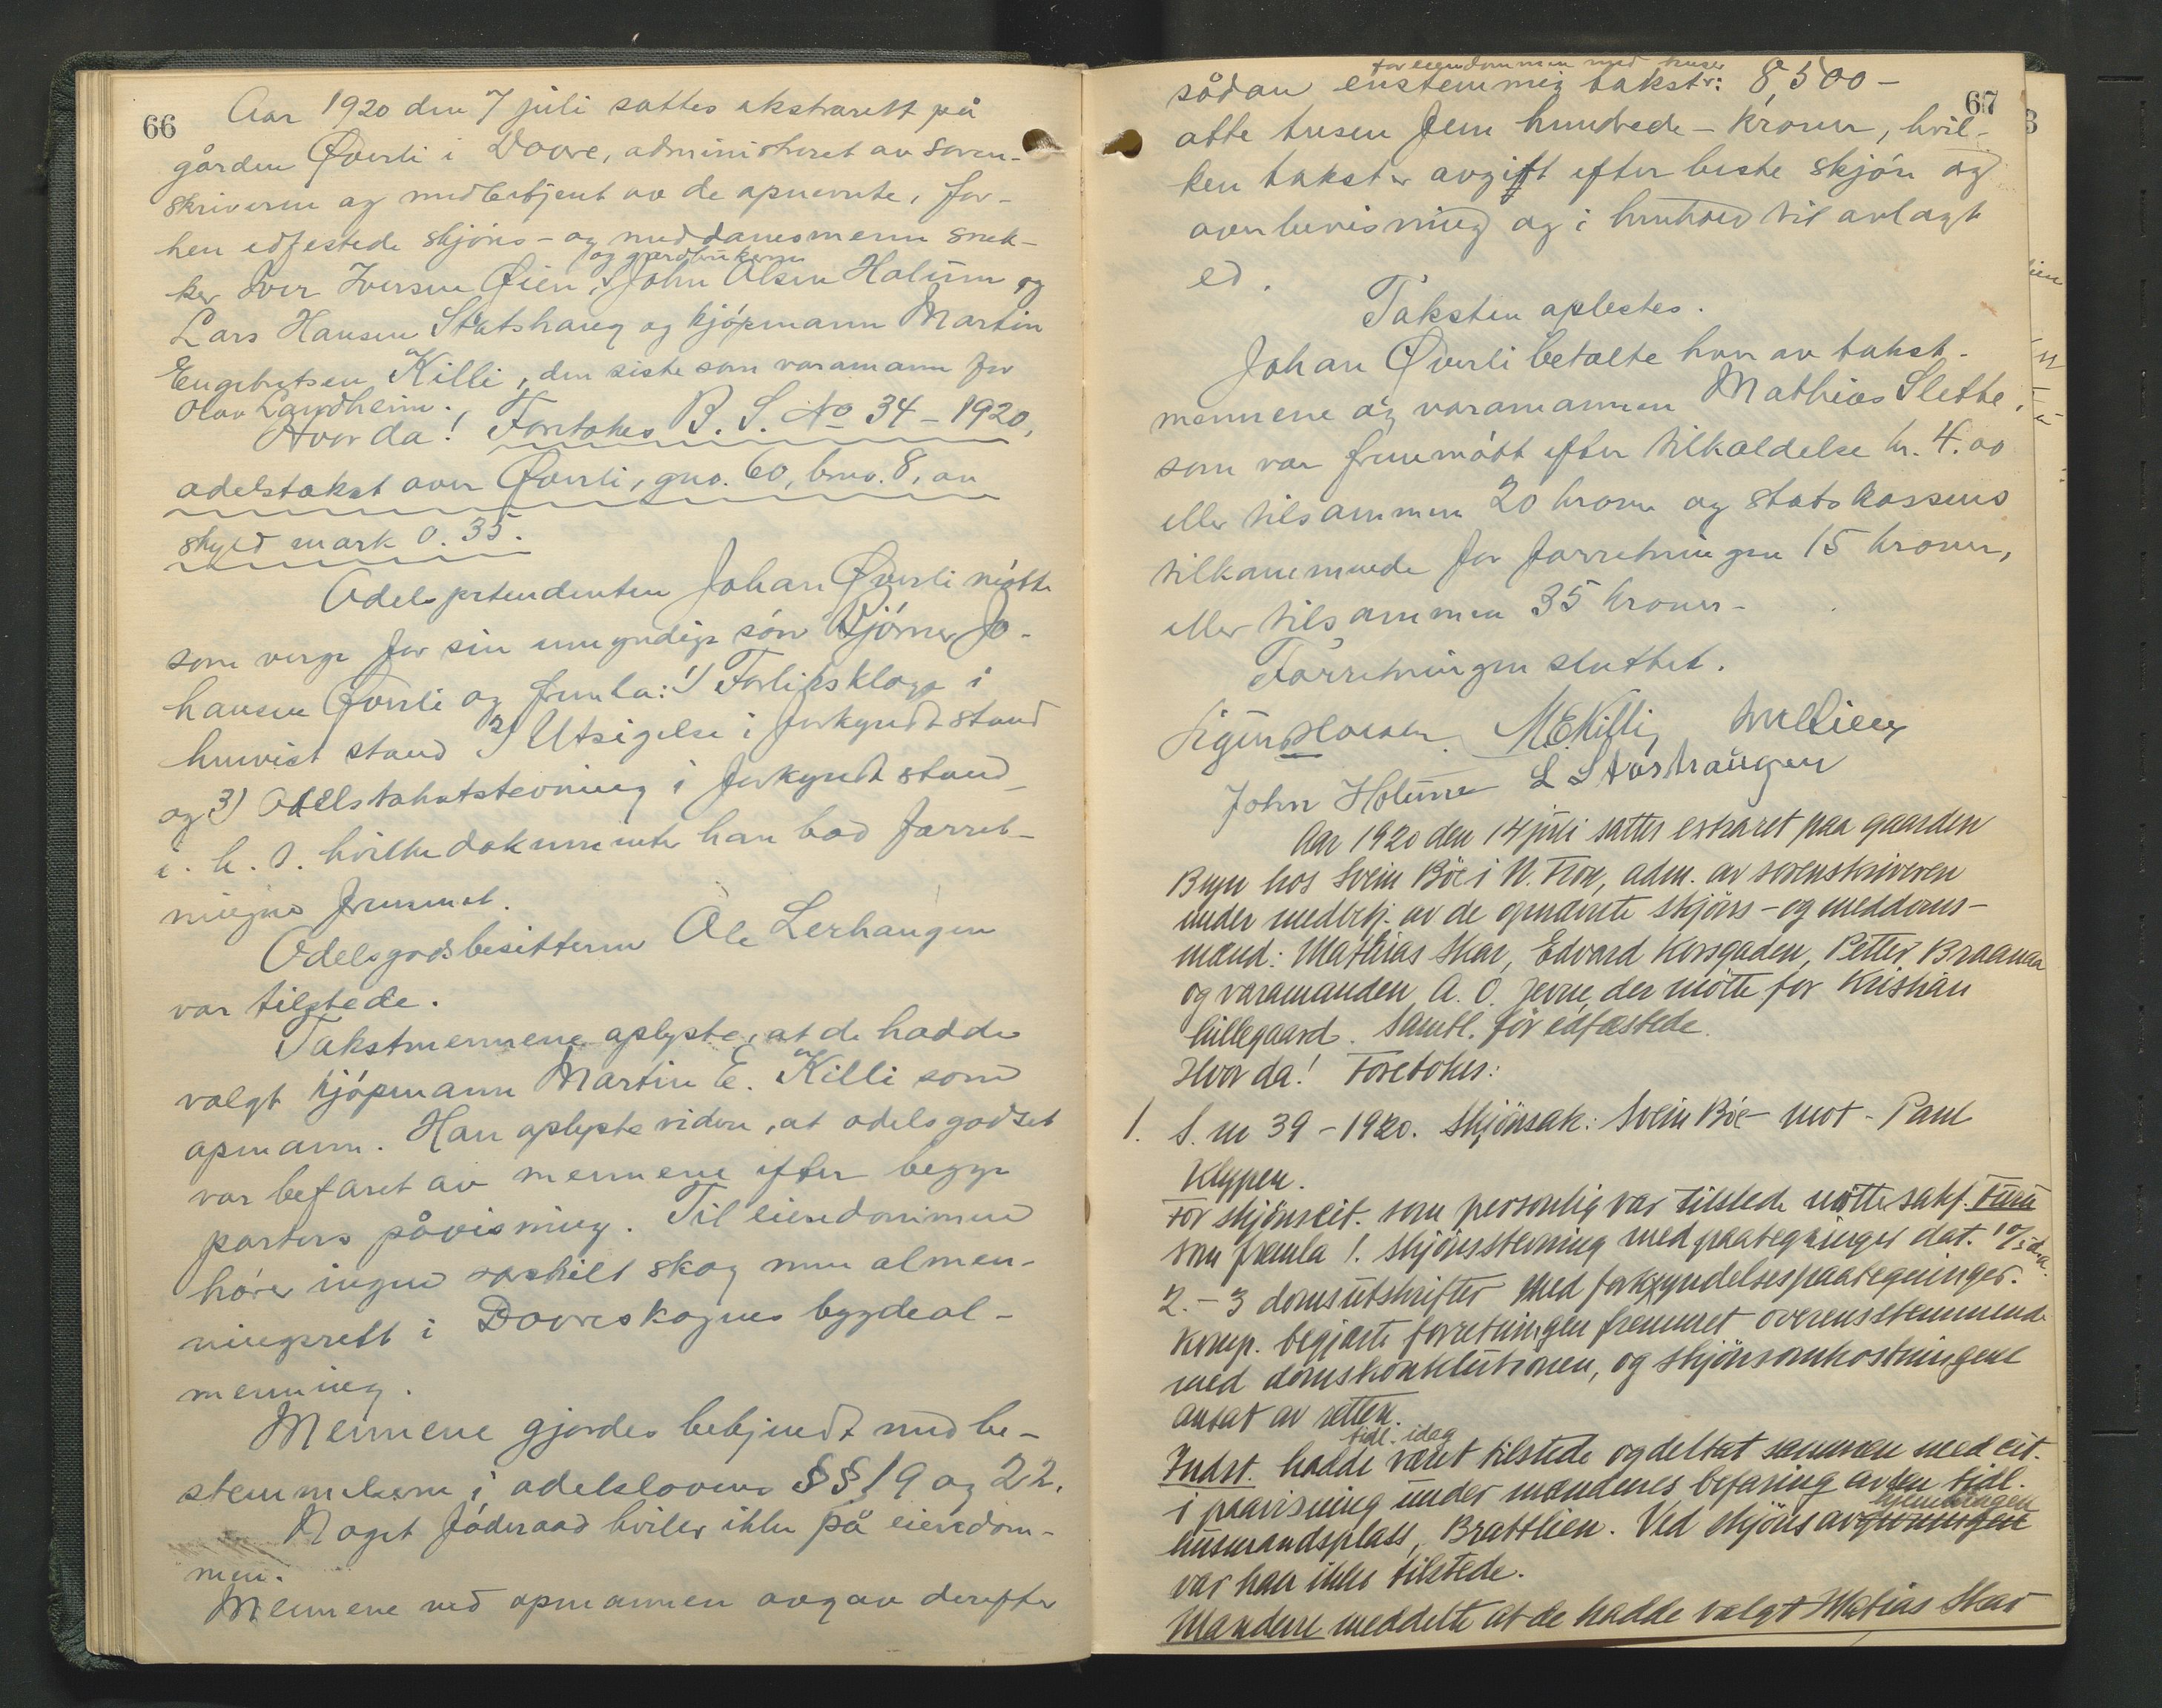 66
Aar 1920 den 7 juli sattes ekstrarett på
gården Øverli i Dovre, administreret av soren-
skriveren og medbetjent av de opnevnte, for-
hen edfestede skjöns- og meddomsmenn snek-
ker Iver Iversen Øien, og gardbrukerne John Olsen Holum og
Lars Hansen Stórshaug og kjöpmann Martin
Engebretsen Killi, den siste som varamann for
Olav Landheim.
Hvor da! Foretokes B. S. No 34 – 1920,
odelstakst over Øverli, gno. 60, bno. 8, av
skyld mark 0.35.
Odelspretendenten Johan Øverli mötte
som verge for sin umyndige sön Björner Jo-
hansen Øverli og fremla: 1) Forliksklage i
henvist stand 2) Utsigelse i forkyndt stand
og 3) Odelstakststevning i forkyndt stand
i. h. t. hvilke dokumenter han bad forret-
ningen fremmet.
Odelsgodsbesitteren Ole Lerhaugen
var tilstede.
Takstmennene oplyste, at de hadde
valgt kjöpmann Martin E. Killi som
opmann. Han oplyste videre, at odelsgodset
var befaret av mennene efter begge
parters påvisning. Til eiendommen
hörer ingen særskilt skog men almen-
ningsrett i Dovreskogens bygdeal-
menning.
Mennene gjordes bekjendt med be-
stemmelserne i odelslovens §§ 19 og 22.
Noget föderaad hviler ikke på eiendom-
men.
Mennene ved opmannen avgav derefter
67
sådan enstemmig takst for eiendommen med huser: 8,500 –
otte tusen fem hundrede – kroner, hvil-
ken takst er avgit efter beste skjön og
overbevisning og i henhold til avlagt
ed.
Taksten oplestes.
Johan Øverli betalte hver av takst-
mennene og varamannen Mathias Slette,
som var fremmött efter tilkaldelse kr. 4.00
eller tilsammen 20 kroner og statskassens
tilkommende for forretningen 15 kroner,
eller tilsammen 35 kroner –
Forretningen sluttet.
M E Killi Iver Øien
John Holum L Storshaugen
Aar 1920 den 14 juli sattes extraret paa gaarden
Bryn hos Svein Böe i N. Fron, adm. av sorenskriveren
under medbetj. av de opnævnte skjöns- og meddoms-
mænd: Mathias Skar, Edvard Korsgaden, Petter Braanaa
og varamanden A. O. Jevne, der mötte for Kristian
Lillegaard. Samtl. för edfæstede.
Hvor da! Foretokes:
1. S. nr 39 – 1920. Skjönsak: Svein Böe – mot – Paul
Klypen.
For skjönscit. som personlig var tilstede mötte sakf. Furu
som fremla 1. skjönsstevning med paategninger dat. 10/5 d.a.
2. – 3 domsutskrifter med forkyndelsespaategninger.
Komp. begjærte forretningen fremmet overensstemmende
med domskonklutionen, og skjönsomkostningene
ansat av retten.
Indst. hadde tidl. idag været tilstede og deltat sammen med cit.
i paavisning under mændenes befaring av den tidl.
husmandsplass, Brattlien. Ved skjöns avhjemlingen
var han ikke tilstede.
Mændene meddelte at de hadde valgt Matias Skar